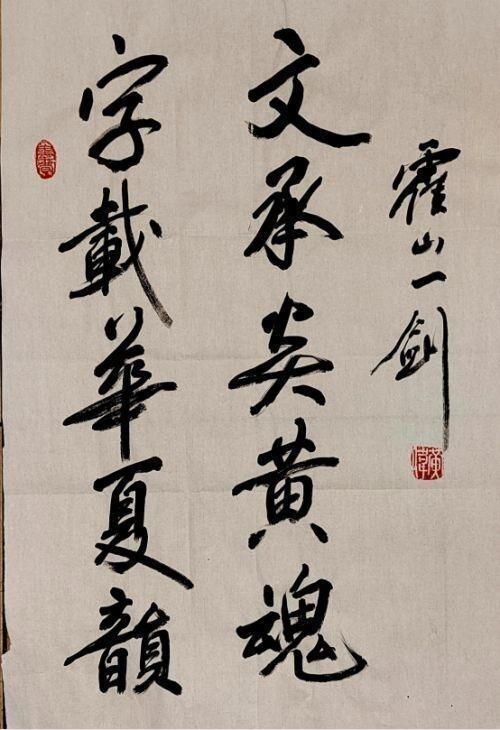 霍山一劍
文承炎黄魂
字載華夏韻